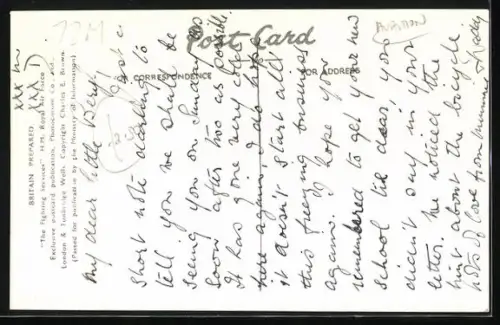 Post Card
CORRESPONDENCE
FOR ADDRESS
BRITAIN PREPARED
"The Fighting Services" H.M. Royal Air Force
Exclusive postcard publication, Photochrom Co. Ltd.,
London & Tunbridge Wells. Copyright Charles E. Brown.
(Passed for publication by the Ministry of Information)
My dear little Beryl,
Just a
short note darling to
tell you we shall be
seeing you on Sunday as
soon after two as possible.
It has gone very cold
here again & I do hope
it doesn't start all
this freezing business
again. I hope you
remembered to get your new
school tie dear, you
didn't say in your
letter. We noticed the
hint about the bicycle
lots of love from Mummie & Daddy
xxx